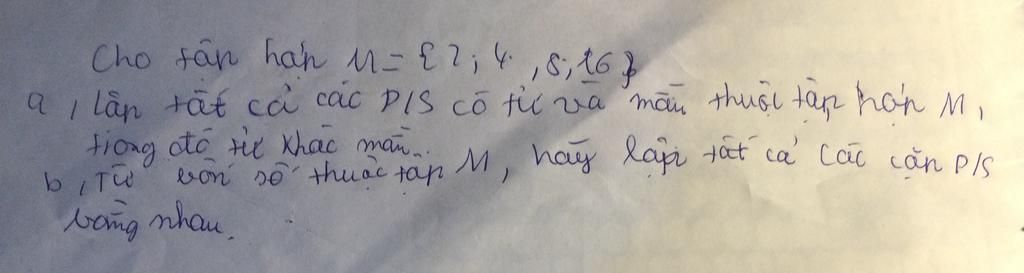 Cho tập hợp M = { 2 ; 4 , 8 ; 16 }
a, Lập tất cả các P/S có tử và mẫu thuộc tập hợp M,
trong đó tử khác mẫu.
b, Từ bốn số thuộc tập M, hãy lập tất cả các cặp P/S
bằng nhau.